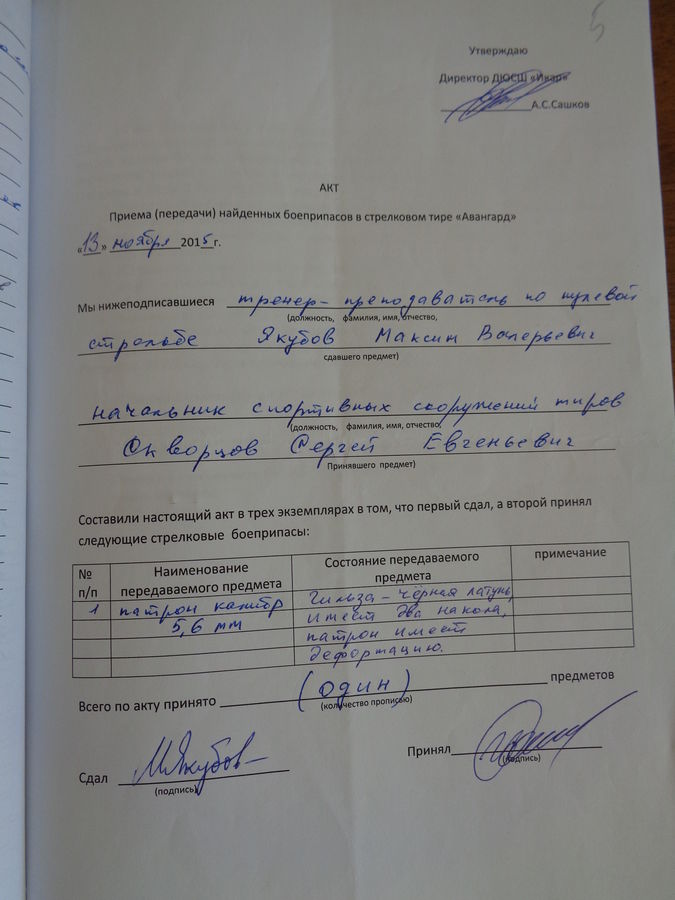 5
Утверждаю
Директор ДЮСШ «Икар»
А.С.Сашков
АКТ
Приема (передачи) найденных боеприпасов в стрелковом тире «Авангард»
«13» ноября 2015г.
Мы нижеподписавшиеся тренер-преподаватель по пулевой
(должность, фамилия, имя, отчество,
стрельбе Якубов Максим Валерьевич
сдавшего предмет)
начальник спортивных сооружений тиров
(должность, фамилия, имя, отчество,
Скворцов Сергей Евгеньевич
Принявшего предмет)
Составили настоящий акт в трех экземплярах в том, что первый сдал, а второй принял
следующие стрелковые боеприпасы:
№ п/п
Наименование
передаваемого предмета
Состояние передаваемого
предмета
примечание
1 патрон калибр Гильза - чёрная латунь,
5,6 мм имеет два накола,
патрон имеет
деформацию.
Всего по акту принято (один) предметов
(количество прописью)
Сдал МЯкубов
(подпись)
Принял
(подпись)